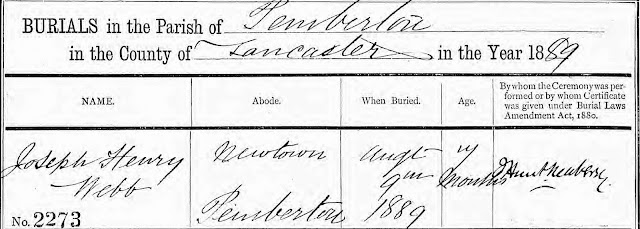 BURIALS in the Parish of Pemberton
in the County of Lancaster in the Year 1889
NAME.
Abode.
When Buried.
Age.
By whom the Ceremony was per-
formed or by whom Certificate
was given under Burial Laws
Amendment Act, 1880.
Joseph Henry
Webb
No. 2273
Newtown
Pemberton
Augt
9th
1889
Months